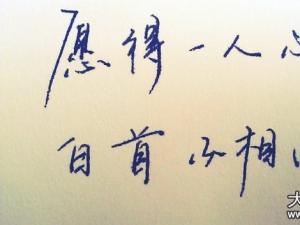 愿得一人心
白首不相
大
www